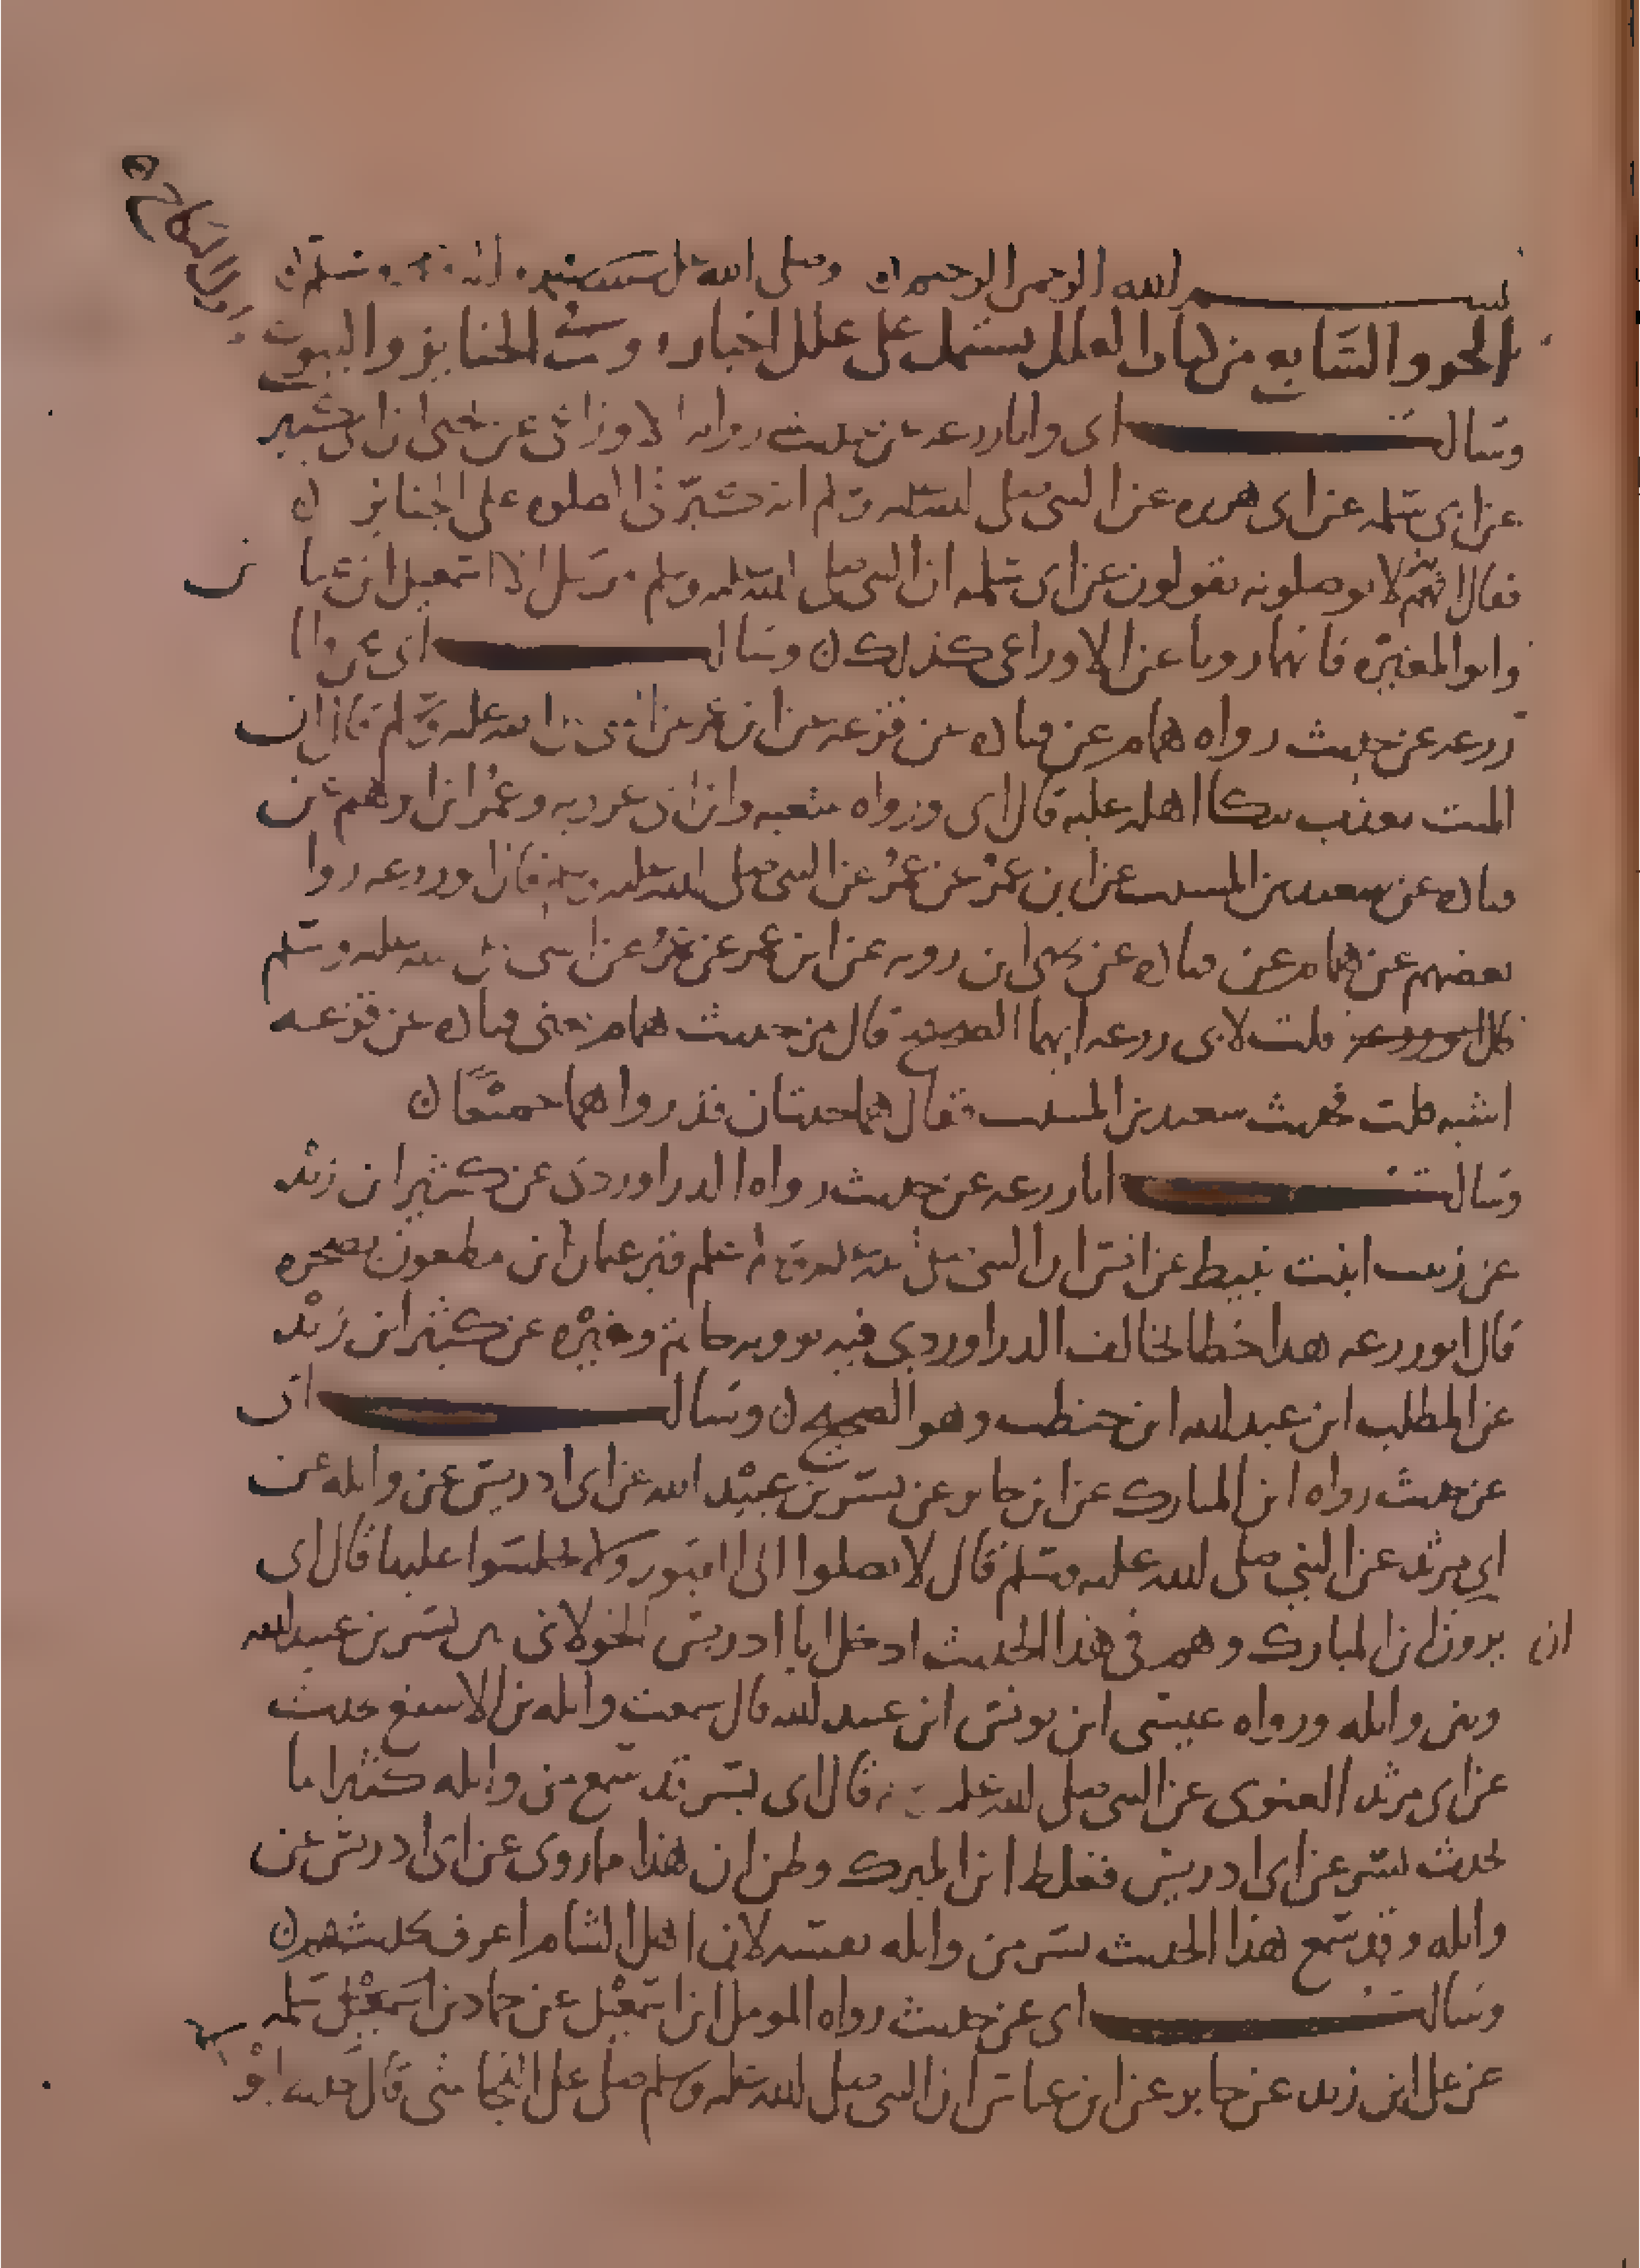 والنكاح
بسم الله الرحمن الرحيم وصلى الله على سيدنا وسلم
الجزو السابع من كتاب العلل يشتمل على علل اخبار رويت في الجنايز والبيوع
وسالت ابي وابا زرعه عن حديث رواه الاوزاعي عن يحيى ابن ابي كثير
عن ابي سلمه عن ابي هريره عن النبي صلى الله عليه وسلم انه كبر في الصلوه على الجنايز
فقال انهم لا يوصلونه يقولون عن ابي سلمه ان النبي صلى الله عليه وسلم مرسل الا اسمعيل ابن عياش
وابو المغيره فانهما رويا عن الاوزاعي كذلك وسالت ابي وابا
زرعه عن حديث رواه همام عن قتاده عن قزعه عن ابن عمر عن النبي صلى الله عليه وسلم قال ان
الميت يعذب ببكا اهله عليه قال ابي ورواه شعبه وابن ابي عروبه وعمر ابن ابراهيم عن
قتاده عن سعيد بن المسيب عن ابن عمر عن عمر عن النبي صلى الله عليه وسلم قال ابو زرعه روا
بعضهم عن همام عن قتاده عن يحيى ابن روبه عن ابن عمر عن عمر عن النبي صلى الله عليه وسلم
قلت لابي زرعه ايهما الصحيح قال من حديث همام حتى قتاده عن قزعه
اشبه قلت فحديث سعيد بن المسيب فقال هما حديثان قد رواهما جميعا
وسالت ابا زرعه عن حديث رواه الدراوردي عن كثير ابن زيد
عن زينب ابنت نبيط عن انس ان النبي صلى الله عليه وسلم علم قبر عثمان ابن مظعون بصخره
قال ابو زرعه هذا خطا يخالف الدراوردي فيه يرويه حاتم وغيره عن كثير ابن زيد
عن المطلب ابن عبد الله ابن حنطب وهو الصحيح وسالت ابي
عن حديث رواه ابن المبارك عن ابن جابر عن بسر بن عبيد الله عن ابي ادريس عن واثله عن
ابي مرثد عن النبي صلى الله عليه وسلم قال لا تصلوا الى القبور ولا تجلسوا عليها قال ابي
يرون ان ابن المبارك وهم في هذا الحديث ادخل ابا ادريس الخولاني بين بسر بن عبيد الله
وبين واثله ورواه عيسى ابن يونس ابن عبد الله قال سمعت واثله بن الاسقع يحدث
عن ابي مرثد الغنوي عن النبي صلى الله عليه وسلم قال ابي بسر قد سمع من واثله كثيرا ما
يحدث بسر عن ابي ادريس فغلط ابن المبرك وظن ان هذا مما روى عن ابي ادريس عن
واثله وقد سمع هذا الحديث بسر من واثله نفسه لان اهل الشام اعرف بحديثهم
وسالت ابي عن حديث رواه المومل ابن اسمعيل عن حماد بن سلمه
عن علي ابن زيد عن جابر عن ابن عباس ان النبي صلى الله عليه وسلم صلى على النجاشي قال